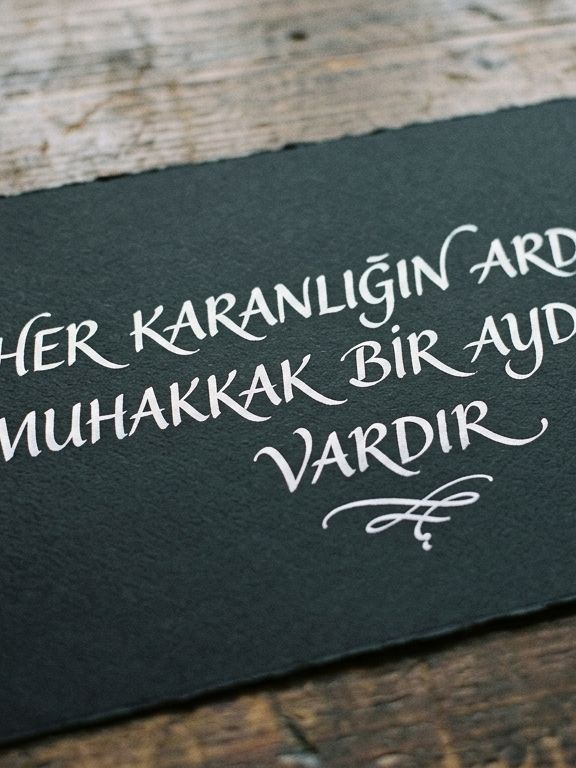 HER KARANLIĞIN ARD
MUHAKKAK BİR AYD
VARDIR